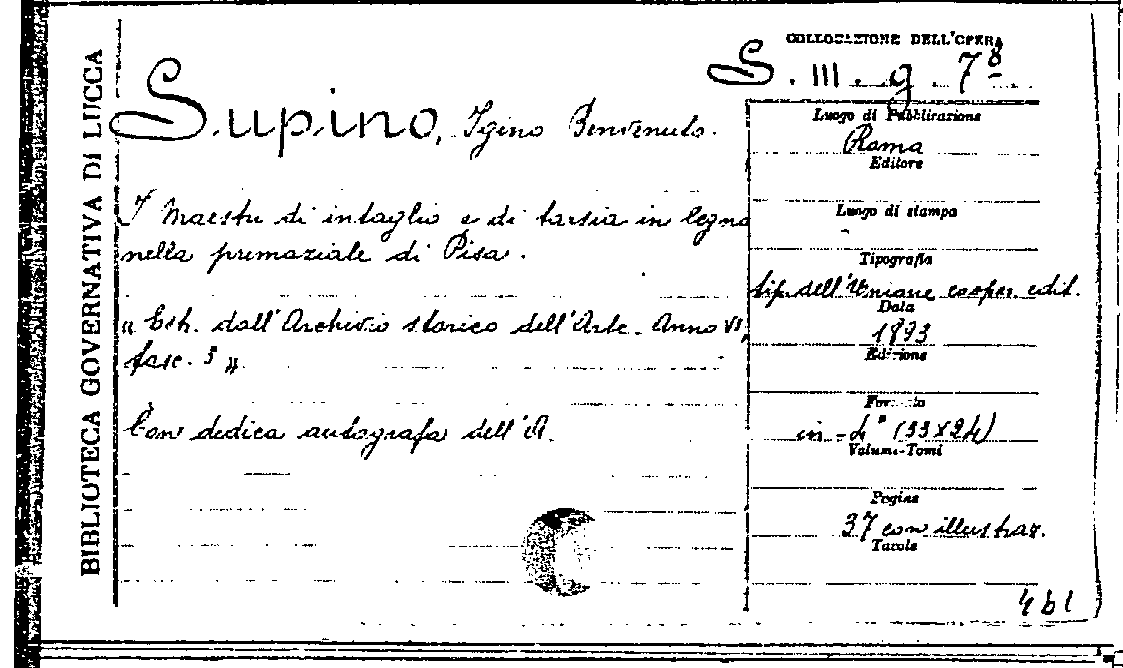 BIBLIOTECA GOVERNATIVA DI LUCCA
COLLOCAZIONE DELL'OPERA
S. III. g. 7⁸
Supino, Igino Benvenuto.
I Maestri di intaglio e di tarsia in legno
nella primaziale di Pisa.
„ Estr. dall'Archivio storico dell'Arte. Anno VI,
fasc. 5 „
Con dedica autografa dell'A.
Luogo di Pubblicazione
Roma
Editore
Luogo di stampa
Tipografia
tip. dell'Unione cooper. edit.
Data
1893
Edizione
Formato
in-4° (33x24)
Volumi-Tomi
Pagine
37 con illustraz.
Tavole